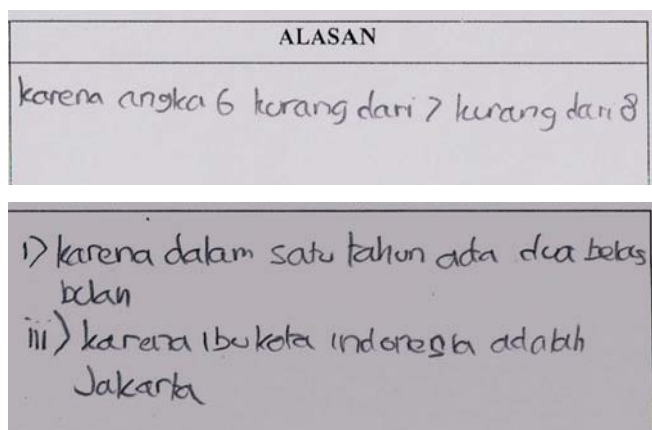 ALASAN
karena angka 6 kurang dari 7 kurang dari 8
i) karena dalam satu tahun ada dua belas
bulan
iii) karena ibu kota indonesia adalah
Jakarta